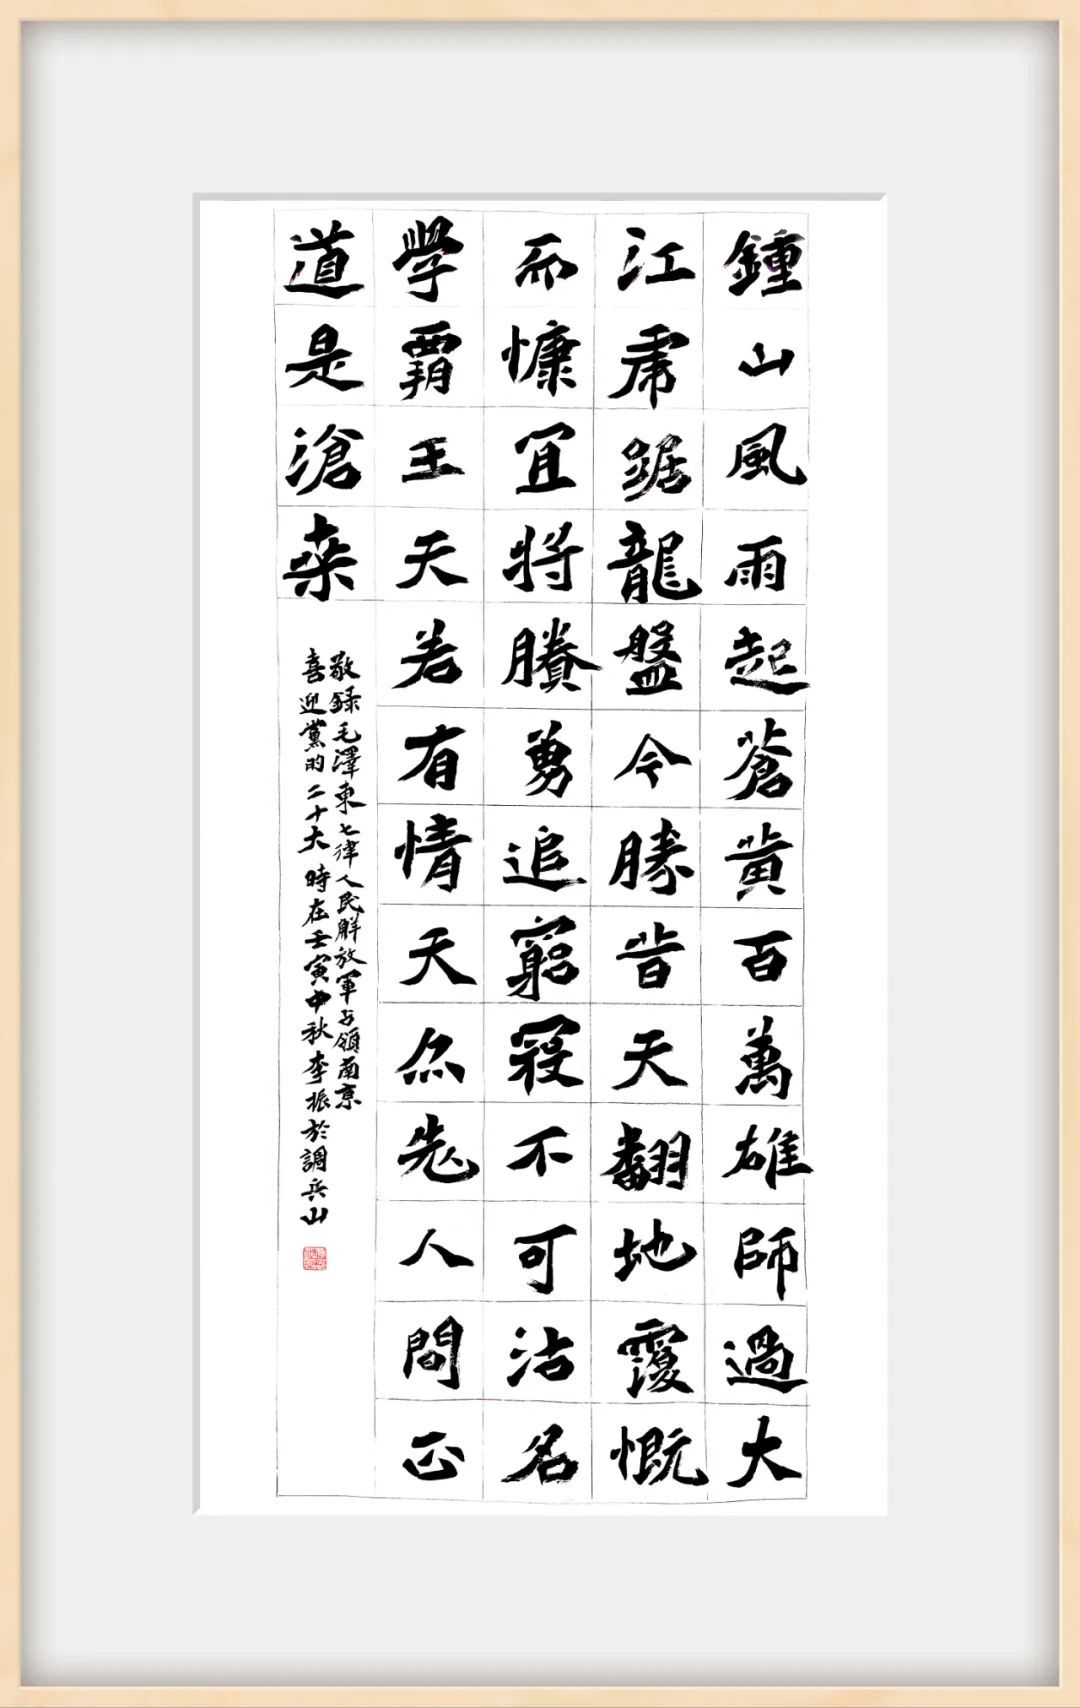 鍾山風雨起蒼黃百萬雄師過大
江虎踞龍盤今勝昔天翻地覆慨
而慷宜將賸勇追窮寇不可沽名
學覇王天若有情天亦老人間正
道是滄桒
敬録毛澤東七律人民解放軍占領南京
喜迎黨的二十大 時在壬寅中秋李振於調兵山